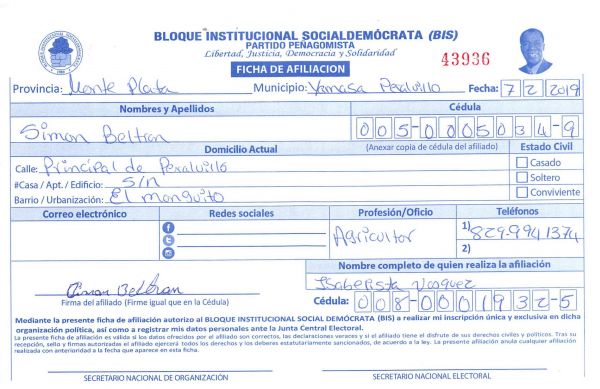 BLOQUE INSTITUCIONAL SOCIALDEMÓCRATA (BIS)
PARTIDO PEÑAGOMISTA
Libertad, Justicia, Democracia y Solidaridad
43936
FICHA DE AFILIACION
Provincia: Monte Plata Municipio: Yamasa Peralvillo Fecha: 7/2/2019
Nombres y Apellidos Cédula
Simon Beltran 005-0005034-9
Domicilio Actual (Anexar copia de cédula del afiliado) Estado Civil
Calle: Principal de Peralvillo Casado
#Casa / Apt. / Edificio: S/N Soltero
Barrio / Urbanización: El monguito Conviviente
Correo electrónico Redes sociales Profesión/Oficio Teléfonos
Agricultor 1) 829-994 1374
2)
Nombre completo de quien realiza la afiliación
Simon Beltran Vasquez
Firma del afiliado (Firme igual que en la Cédula) Cédula: 008-0001932-5
Mediante la presente ficha de afiliación autorizo al BLOQUE INSTITUCIONAL SOCIAL DEMÓCRATA (BIS) a realizar mi inscripción única y exclusiva en dicha
organización política, así como a registrar mis datos personales ante la Junta Central Electoral.
La presente ficha de afiliación es válida si los datos ofrecidos por el afiliado son correctos, las declaraciones veraces y si el afiliado tiene el disfrute de sus derechos civiles y políticos. Tras su
recepción, sello y firmas autorizadas el afiliado ejercerá todos los derechos y los deberes estatutariamente sancionados, de acuerdo a la ley. La presente afiliación anula cualquier afiliación
realizada con anterioridad a la fecha que aparece en esta ficha.
SECRETARIO NACIONAL DE ORGANIZACIÓN SECRETARIO NACIONAL ELECTORAL